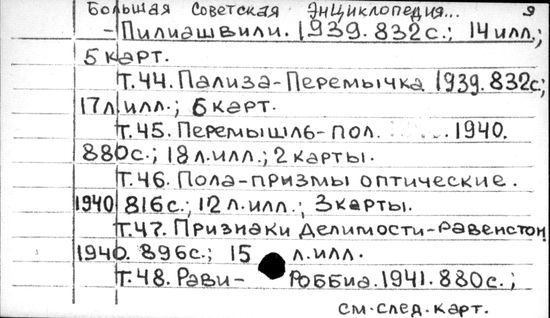 Большая Советская Энциклопедия... 9
- Пилиашвили. 1939. 832с.; 14 илл.;
5 карт.
Т.44. Пализа-Перемычка 1939. 832с;
17 л илл.; 6 карт.
Т.45. Перемышль-пол. 1940.
880с.; 18 л.илл.; 2 карты.
Т.46. Пола-призмы оптические.
1940 816с.; 12 л.илл.; 3 карты.
Т.47. Признаки делимости-Равенстон
1940. 896с.; 15 л.илл.
Т.48. Рави- Роббиа. 1941. 880с.;
см.след.карт.